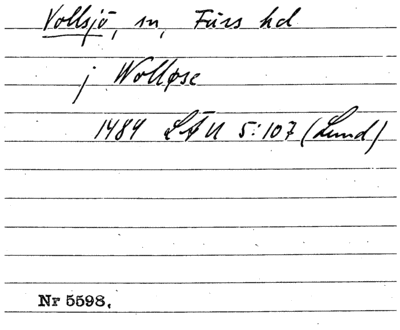 Vollsjö, sn, Färs hd
j Wolløse
1484 LÄU 5:107 (Lund)
Nr 5598.